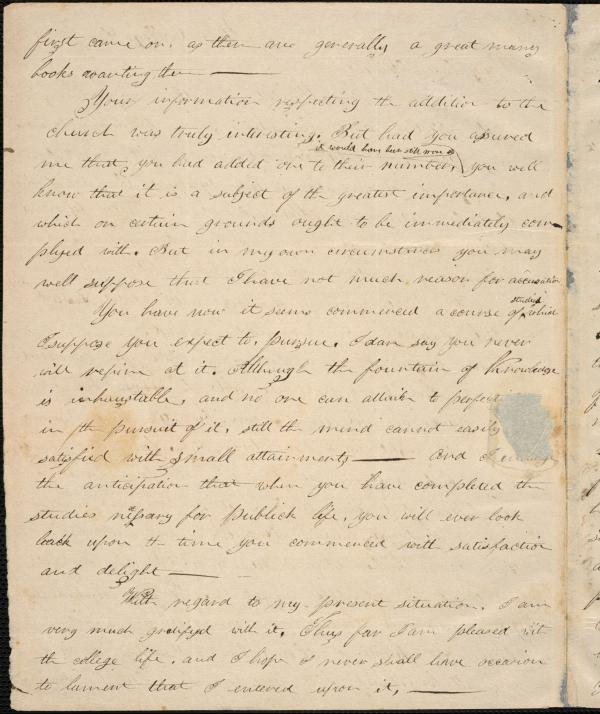 first came on. as there are generally a great many
books wanting then ——
Your information respecting the addition to the
church was truly interesting. But had you assured
it would have been still more so
me that you had added one to their number, you well
know that it is a subject of the greatest importance, and
which on certain grounds ought to be immediately com-
plyed with. But in my own circumstances you may
well suppose that I have not much reason for accusation
You have now it seems commenced a course of studies which
I suppose you expect to pursue. I dare say you never
will repine at it. Although the fountain of Knowledge
is inhaustable, and no one can attain to perfect
in th pursuit of it, still the mind cannot easily
satisfied with small attainments —— and I
the anticipation that when you have completed the
studies nessary for publick life, you will ever look
back upon th time you commenced with satisfaction
and delight ——
With regard to my present situation. I am
very much gratifyed with it. Thus far I am pleased with
the college life, and I hope I never shall have occasion
to lament that I entered upon it, ——